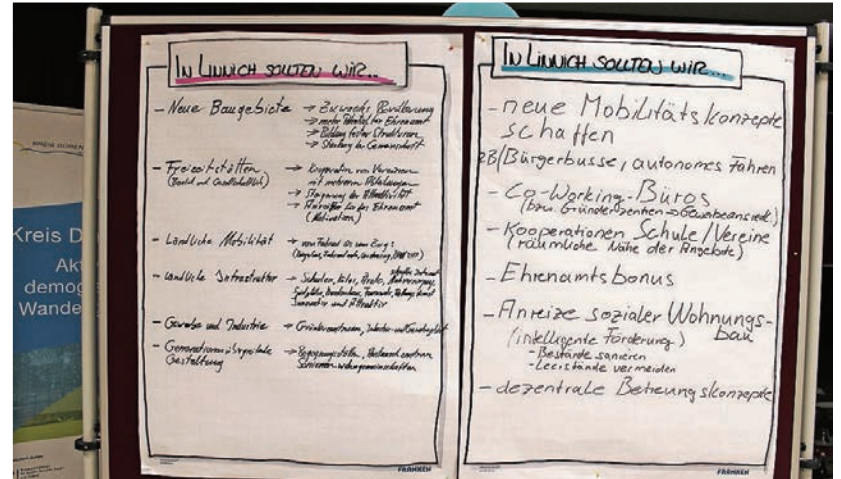 Kreis D
Akt
demog
Wande
IN LINNICH SOLLTEN WIR...
- Neue Baugebiete → Zuwachs Bevölkerung
→ mehr Potential für Ehrenamt
→ Bildung fester Strukturen
→ Stärkung der Gemeinschaft
- Freizeitstätten → Kooperation von Vereinen
mit mehreren Abteilungen
→ Steigerung der Attraktivität
→ Anreize für Ehrenamt
(Motivation)
- Ländliche Mobilität → vom Fahrrad bis zum Zug:
- Ländliche Infrastruktur → Schulen, Kitas, Ärzte,
Innovativ und Attraktiv
- Gewerbe und Industrie → Gründerzentrum,
- Generationsübergreifende
Gestaltung
→ Begegnungsstätten,
Seniorenwohngemeinschaften
FRANKEN
IN LINNICH SOLLTEN WIR...
- neue Mobilitätskonzepte
schaffen
ZB/Bürgerbusse, autonomes Fahren
- Co-Working-Büros
(bzw. Gründerzentren → Gewerbeansied.)
- Kooperationen Schule/Vereine
(räumliche Nähe der Angebote)
- Ehrenamtsbonus
- Anreize sozialer Wohnungs-
bau
(intelligente Förderung)
- Bestände sanieren
- Leerstände vermeiden
- dezentrale Betreuungskonzepte
FRANKEN